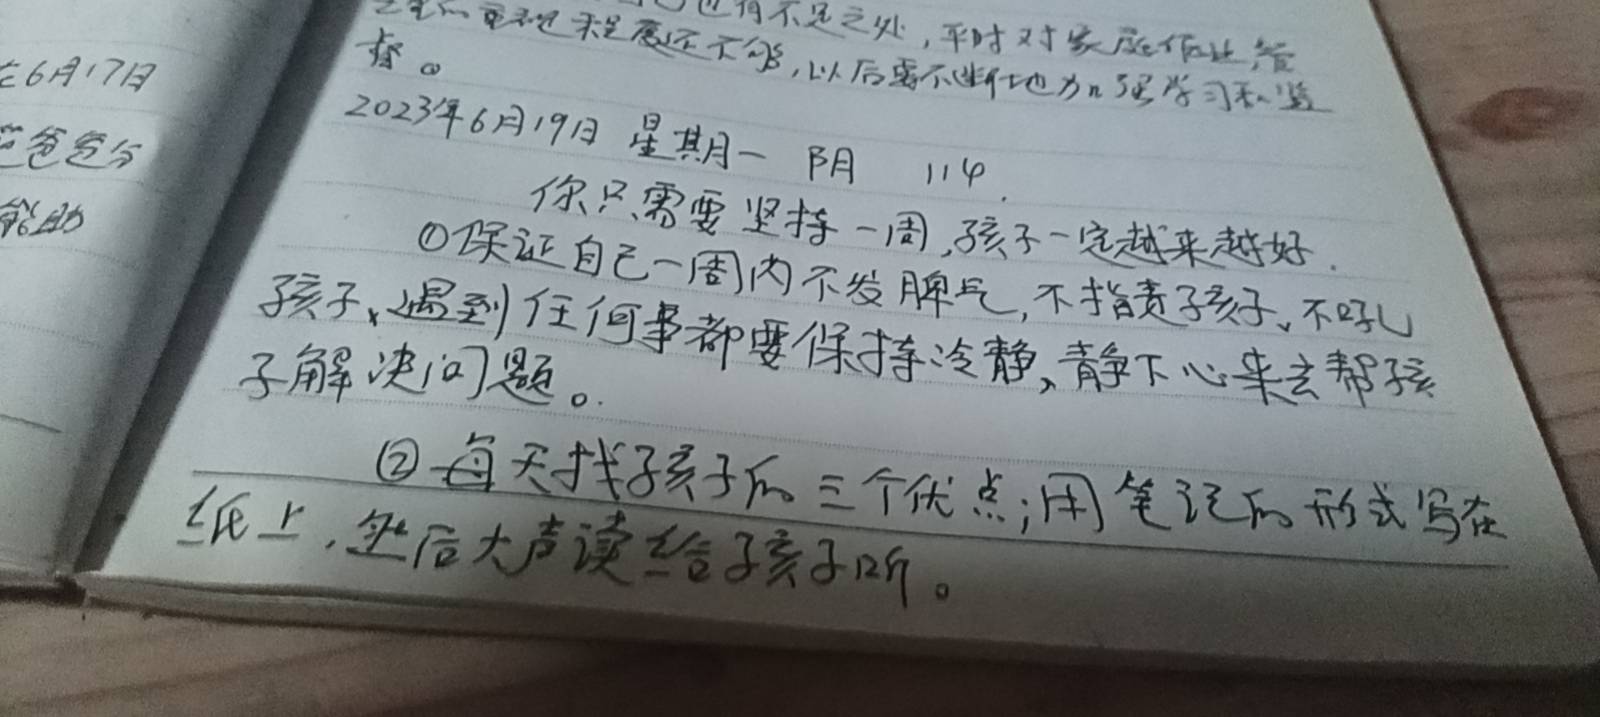 在6月17日
爸爸分
能助
也有不足之处，平时对家庭作业，管
的重视程度还不够，以后要不断地加强学习和监
督。
2023年6月19日 星期一 阴 114
你只需要坚持一周，孩子一定越来越好.
①保证自己一周内不发脾气，不指责孩子、不吼
孩子、遇到任何事都要保持冷静、静下心来去帮孩
子解决问题。
②每天找孩子的三个优点；用笔记的形式写在
纸上，然后大声读给孩子听。